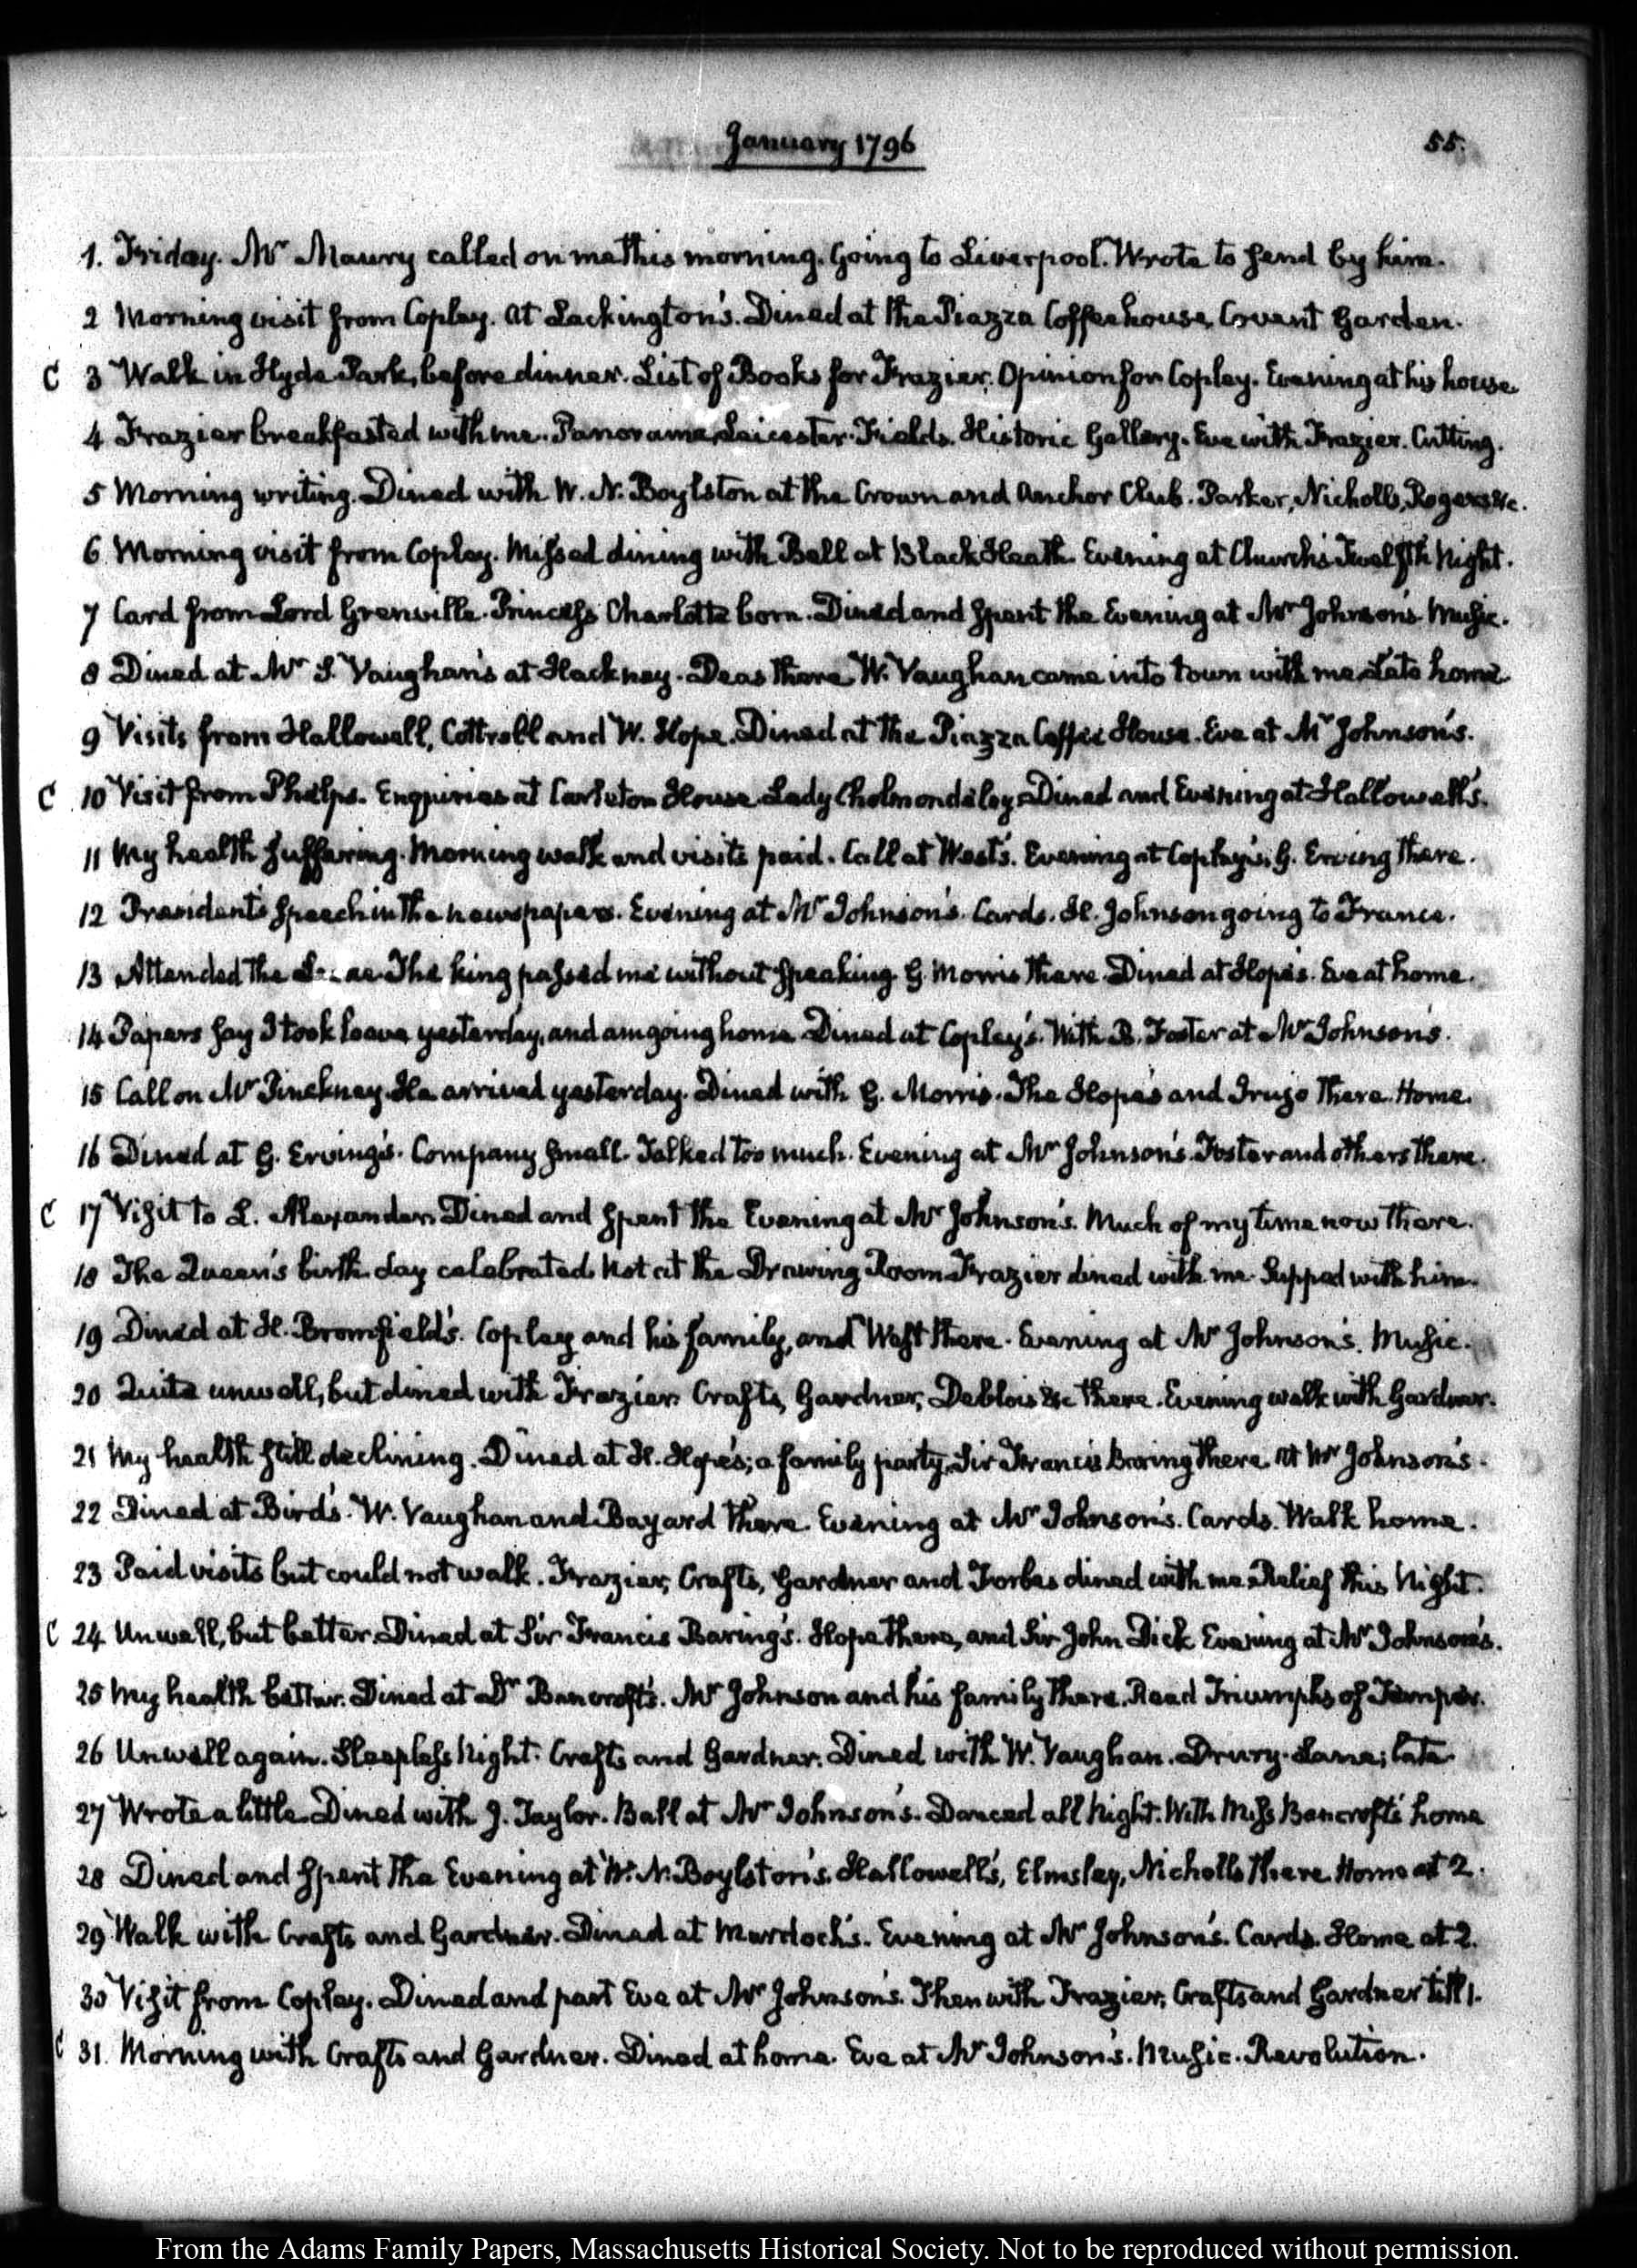 January 1796
55.
1. Friday. Mr Maury called on me this morning. Going to Liverpool. Wrote to send by him.
2 Morning visit from Copley. At Lackington's. Dined at the Piazza Coffeehouse, Covent Garden.
C 3 Walk in Hyde Park, before dinner. List of Books for Frazier. Opinion for Copley. Evening at his house.
4 Frazier breakfasted with me. Panorama, Leicester-Fields. Historic Gallery. Eve with Frazier. Cutting.
5 Morning writing. Dined with W. N. Boylston at the Crown and Anchor Club. Parker, Nicholls, Rogers &c.
6 Morning visit from Copley. Missed dining with Ball at Black Heath. Evening at Church's Twelfth Night.
7 Card from Lord Grenville. Princess Charlotte born. Dined and spent the Evening at Mr Johnson's. Music.
8 Dined at Mr S. Vaughan's at Hackney. Deas there. W. Vaughan came into town with me. Late home.
9 Visits from Hallowell, Cottrell and W. Hope. Dined at the Piazza Coffee House. Eve at Mr Johnson's.
C 10 Visit from Phelps. Enquiries at Carleton House. Lady Cholmondeley. Dined and Evening at Hallowell's.
11 My health suffering. Morning walk and visits paid. Call at West's. Evening at Copley's. G. Erving there.
12 President's speech in the newspapers. Evening at Mr Johnson's. Cards. H. Johnson going to France.
13 Attended the The king passed me without speaking. G. Morris there. Dined at Hope's. Eve at home.
14 Papers say I took leave yesterday, and am going home. Dined at Copley's. With B. Foster at Mr Johnson's.
15 Call on Mr Pinckney. He arrived yesterday. Dined with G. Morris. The Hopes and Irujo there. Home.
16 Dined at G. Erving's. Company small. Talked too much. Evening at Mr Johnson's. Foster and others there.
C 17 Visit to L. Alexander. Dined and spent the Evening at Mr Johnson's. Much of my time now there.
18 The Queen's birth day celebrated. Not at the Drawing Room. Frazier dined with me. Supped with him.
19 Dined at H. Bromfield's. Copley and his family, and West there. Evening at Mr Johnson's. Music.
20 Quite unwell, but dined with Frazier. Crafts, Gardner, Deblois &c there. Evening walk with Gardner.
21 My health still declining. Dined at H. Hope's; a family party, Sir Francis Baring there. At Mr Johnson's.
22 Dined at Bird's. W. Vaughan and Bayard there. Evening at Mr Johnson's. Cards. Walk home.
23 Paid visits but could not walk. Frazier, Crafts, Gardner and Forbes dined with me. Relief this Night.
C 24 Unwell, but better. Dined at Sir Francis Baring's. Hope there, and Sir John Dick. Evening at Mr Johnson's.
25 My health better. Dined at Dr Bancroft's. Mr Johnson and his family there. Read Triumphs of Temper.
26 Unwell again. Sleepless Night. Crafts and Gardner. Dined with W. Vaughan. Drury-Lane; late.
27 Wrote a little. Dined with J. Taylor. Ball at Mr Johnson's. Danced all Night. With Miss Bancrofts home
28 Dined and spent the Evening at W. N. Boylston's. Hallowell's, Elmsley, Nicholls there. Home at 2.
29 Walk with Crafts and Gardner. Dined at Murdoch's. Evening at Mr Johnson's. Cards. Home at 2.
30 Visit from Copley. Dined and part Eve at Mr Johnson's. Then with Frazier, Crafts and Gardner till 1.
C 31. Morning with Crafts and Gardner. Dined at home. Eve at Mr Johnson's. Music. Revolution.
From the Adams Family Papers, Massachusetts Historical Society. Not to be reproduced without permission.